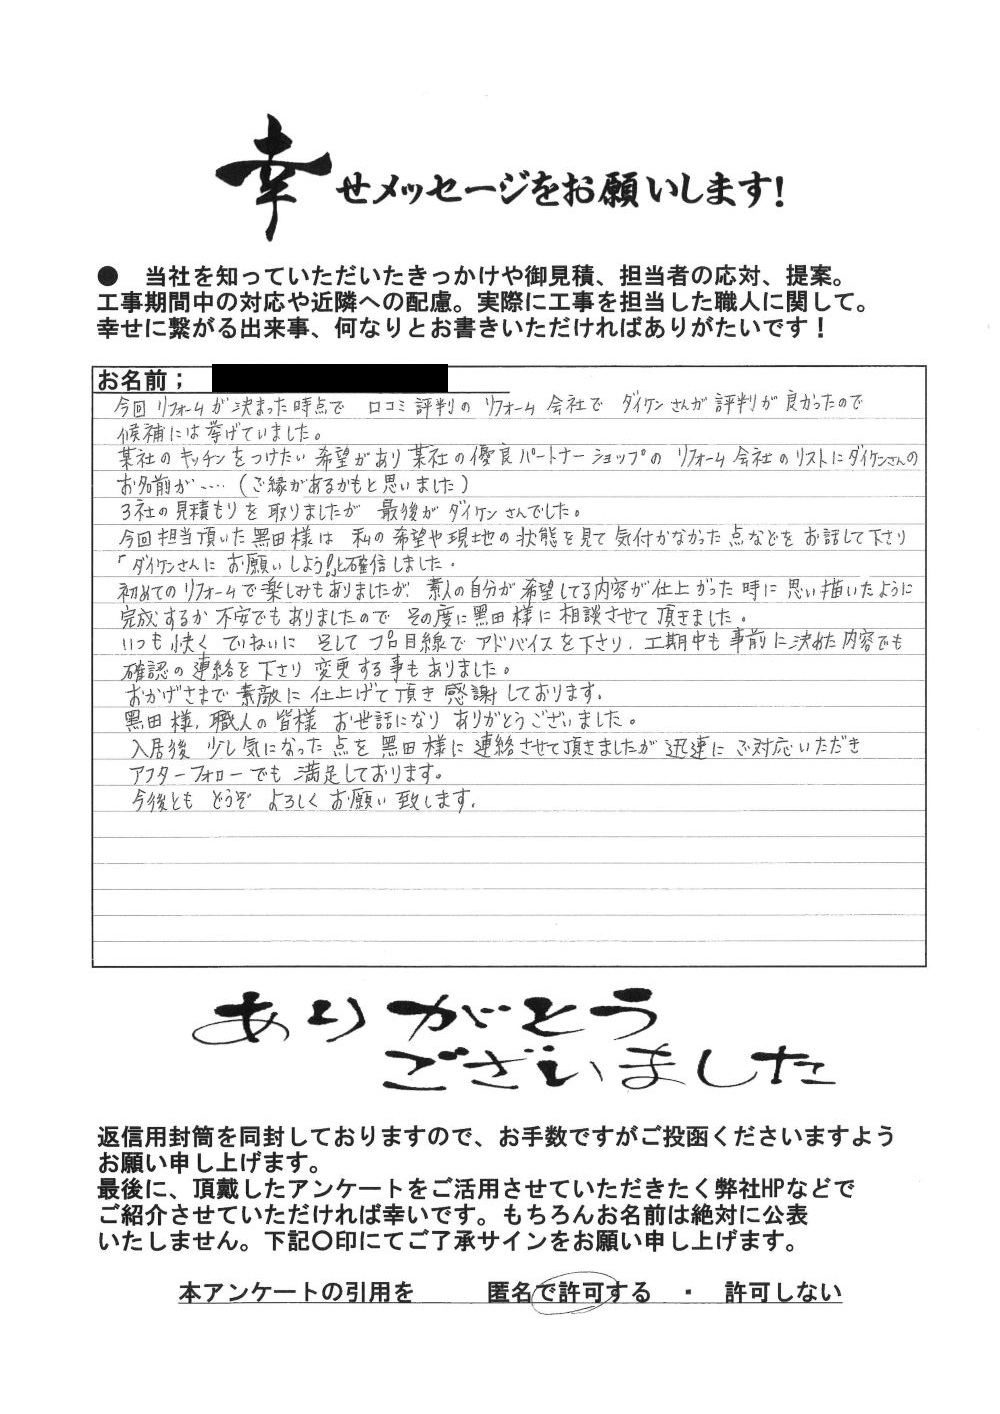 幸せメッセージをお願いします！
● 当社を知っていただいたきっかけや御見積、担当者の応対、提案。
工事期間中の対応や近隣への配慮。実際に工事を担当した職人に関して。
幸せに繋がる出来事、何なりとお書きいただければありがたいです！
お名前；
今回 リフォームが決まった時点で 口コミ評判の リフォーム会社で ダイケンさんが評判が良かったので
候補には挙げていました。
某社のキッチンをつけたい希望があり某社の優良パートナーショップの リフォーム会社のリストにダイケンさんの
お名前が‥‥（ご縁があるかもと思いました）
3社の見積もりを取りましたが 最後がダイケンさんでした。
今回担当頂いた黒田様は 私の希望や現地の状態を見て気付かなかった点などをお話して下さり
「ダイケンさんに お願いしよう!」と確信しました。
初めてのリフォームで楽しみもありましたが、素人の自分が希望してる内容が仕上がった時に思い描いたように
完成するか不安でもありましたので その度に黒田様に相談させて頂きました。
いつも快く ていねいに そして プロ目線で アドバイスを下さり、工期中も事前に決めた内容でも
確認の連絡を下さり 変更する事もありました。
おかげさまで素敵に仕上げて頂き感謝しております。
黒田様、職人の皆様 お世話になり ありがとうございました。
入居後 少し気になった点を黒田様に連絡させて頂きましたが迅速にご対応いただき
アフターフォローでも満足しております。
今後とも どうぞ よろしくお願い致します。
ありがとう
ございました
返信用封筒を同封しておりますので、お手数ですがご投函くださいますよう
お願い申し上げます。
最後に、頂戴したアンケートをご活用させていただきたく弊社HPなどで
ご紹介させていただければ幸いです。もちろんお名前は絶対に公表
いたしません。下記〇印にてご了承サインをお願い申し上げます。
本アンケートの引用を 匿名で許可する ・ 許可しない